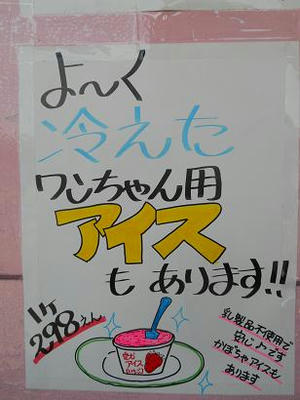 よ〜く
冷えた
ワンちゃん用
アイス
も あります!!
1ケ
298えん
アイス
乳製品不使用で
安心です
かぼちゃアイスも
あります